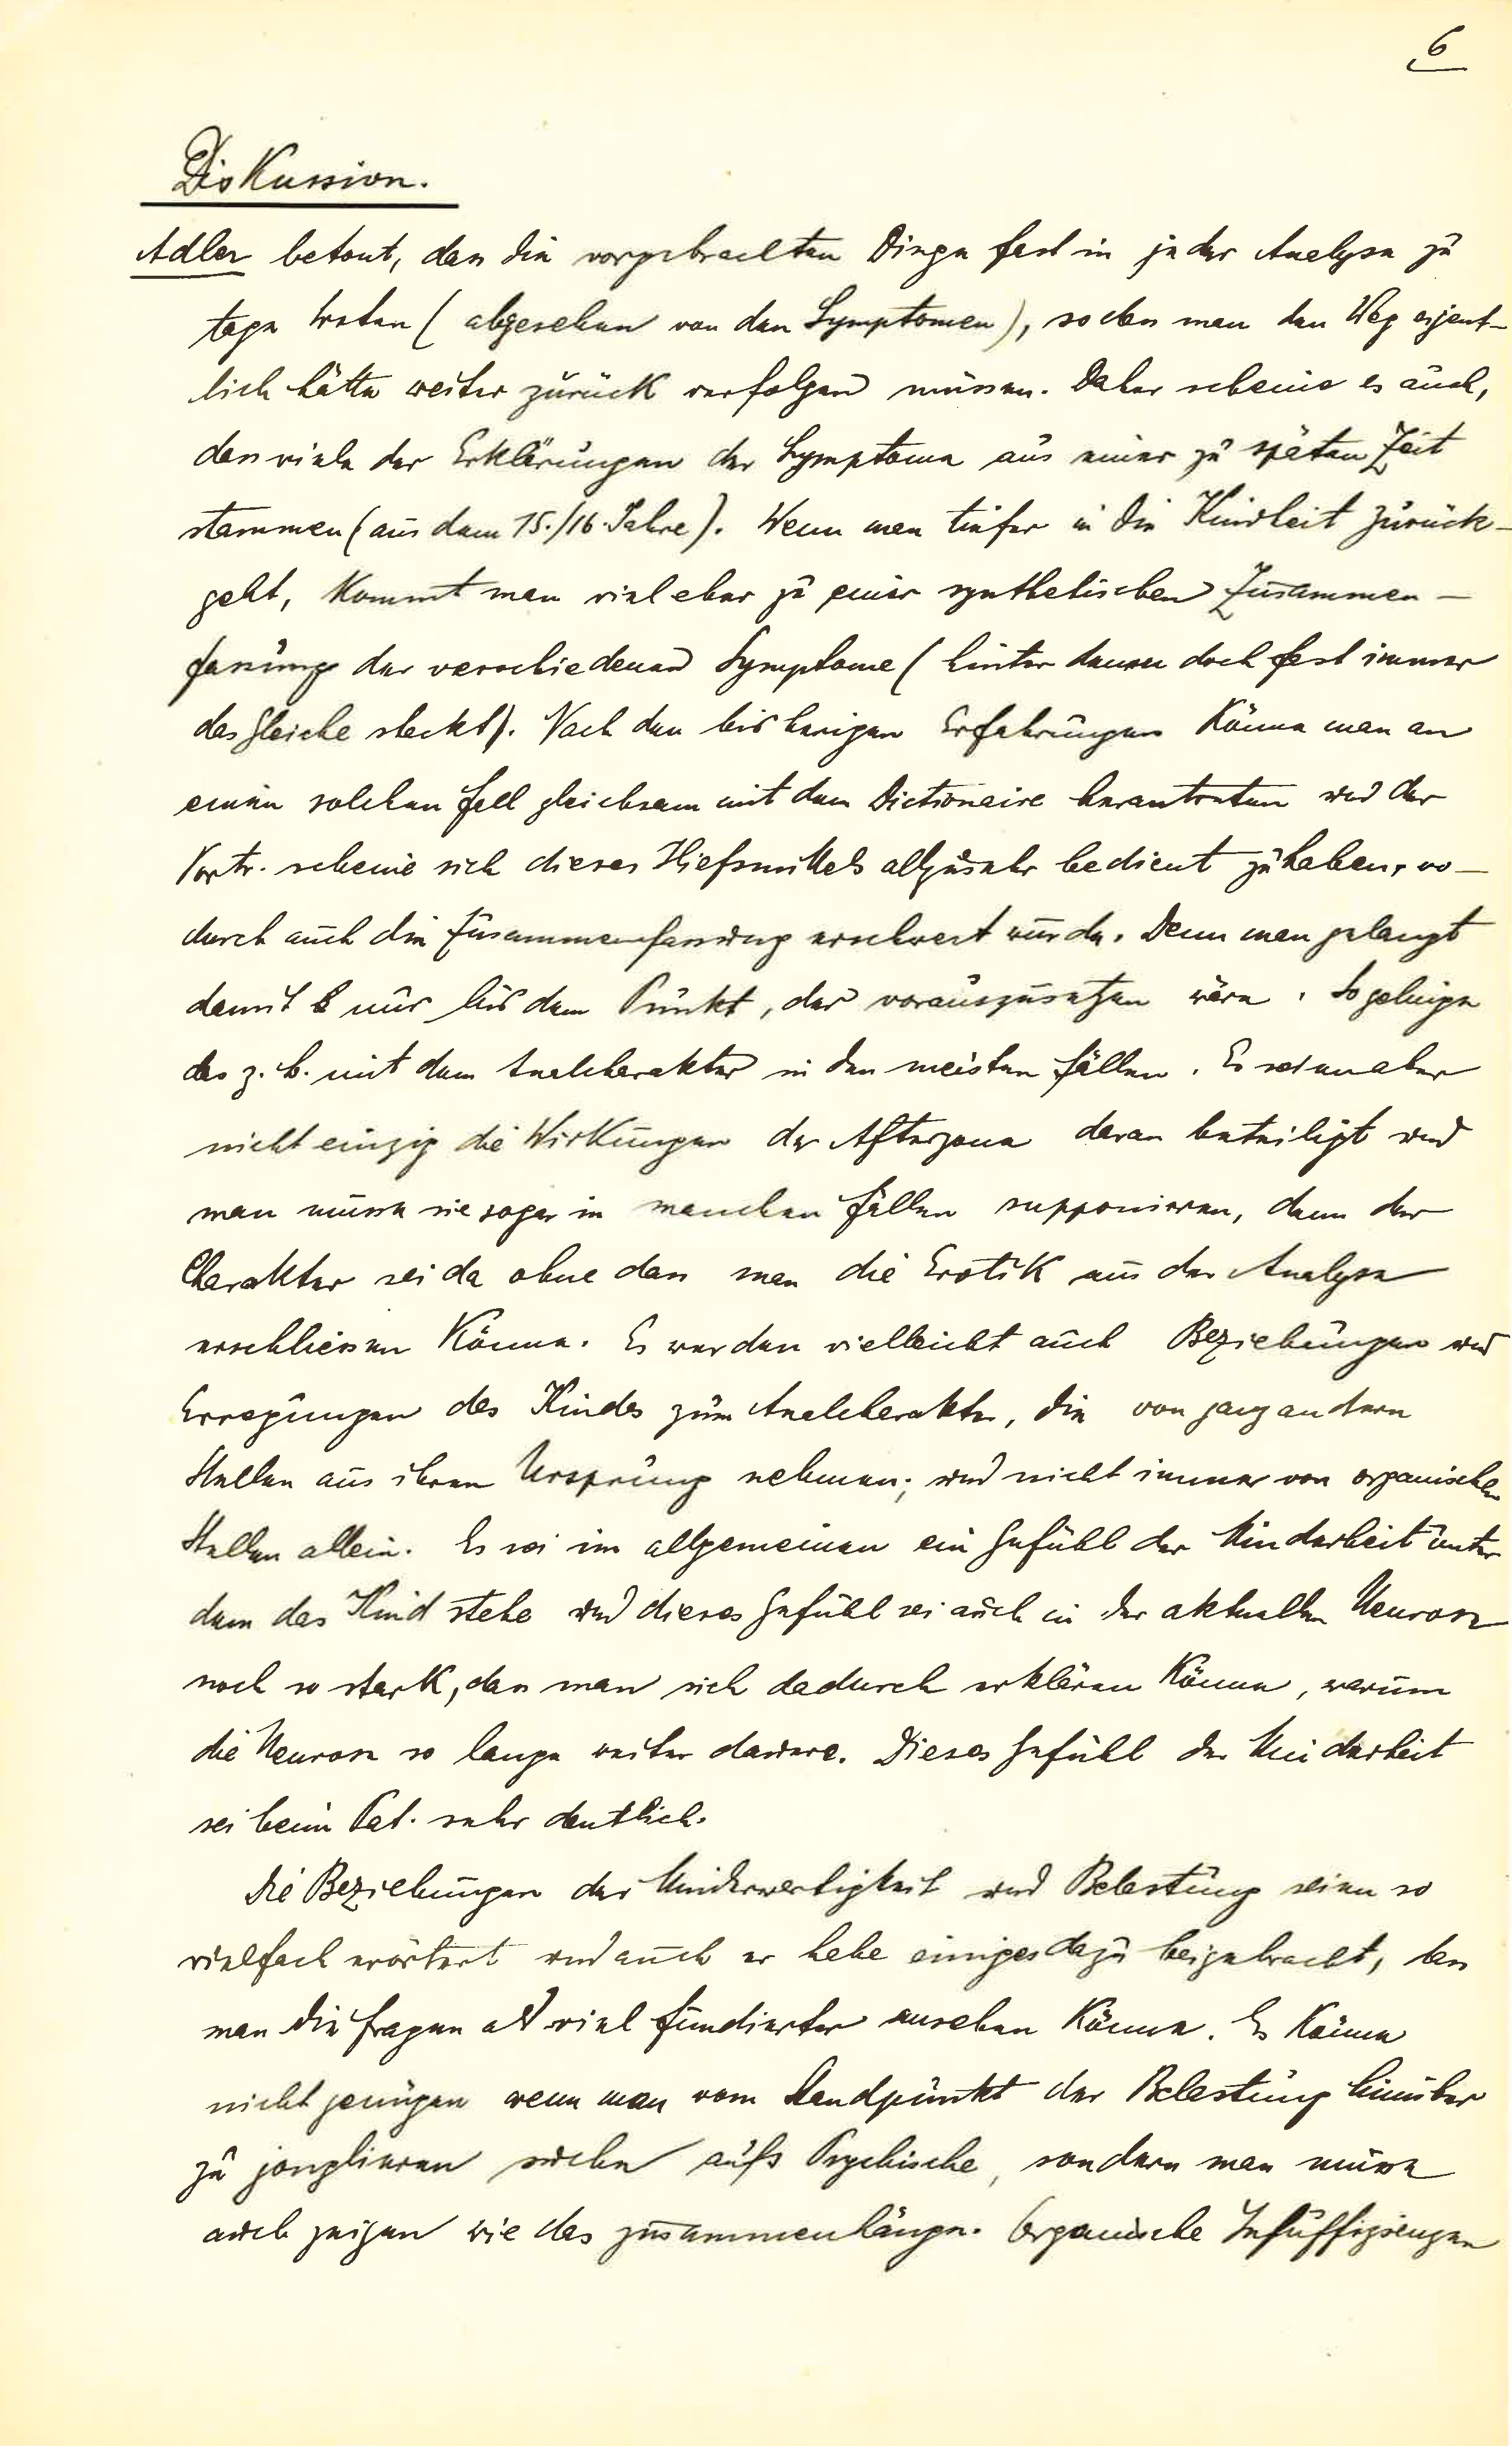 6
Diskussion.
Adler betont, dass die vorgebrachten Dinge fast in jeder Analyse zu
tage treten (abgesehen von den Symptomen), sodass man den Weg eigent-
lich hätte weiter zurück verfolgen müssen. Daher scheine es auch,
dass viele der Erklärungen der Symptome aus einer zu späten Zeit
stammen (aus dem 15./16. Jahre). Wenn man tiefer in die Kindheit zurück-
geht, kommt man viel eher zu einer synthetischen Zusammen-
fassung der verschiedenen Symptome (hinter denen doch fast immer
das Gleiche steckt). Nach den bisherigen Erfahrungen könne man an
einen solchen Fall gleichsam mit dem Dictionaire herantreten und der
Vortr. scheine sich dieses Hilfsmittels allzusehr bedient zu haben, wo-
durch auch die Zusammenfassung erschwert wurde. Denn man gelangt
damit nur bis dem Punkt, der vorauszusetzen wäre. So gelinge
das z. B. mit dem Analcharakter in den meisten Fällen. Es seien aber
nicht einzig die Wirkungen der Afterzone daran beteiligt und
man müsse sie sogar in manchen Fällen supponieren, denn der
Charakter sei da ohne dass man die Erotik aus der Analyse
erschliessen könne. Es werden vielleicht auch Beziehungen und
Erregungen des Kindes zum Analcharakter, die von ganz andern
Stellen aus ihren Ursprung nehmen; und nicht immer von organischen
Stellen allein. Es sei im allgemeinen ein Gefühl der Minderheit unter
dem das Kind stehe und dieses Gefühl sei auch in der aktuellen Neurose
noch so stark, dass man sich dadurch erklären könne, warum
die Neurose so lange weiter dauere. Dieses Gefühl der Minderheit
sei beim Pat. sehr deutlich.
Die Beziehungen der Minderwertigkeit und Belastung seien so
vielfach erörtert und auch er habe einiges dazu beigebracht, dass
man die Fragen als viel fundierter ansehen könne. Es könne
nicht genügen wenn man vom Standpunkt der Belastung hinüber
zu jonglieren suche aufs Psychische, sondern man müsse
auch zeigen wie das zusammenhänge. Organische Insuffizienzen